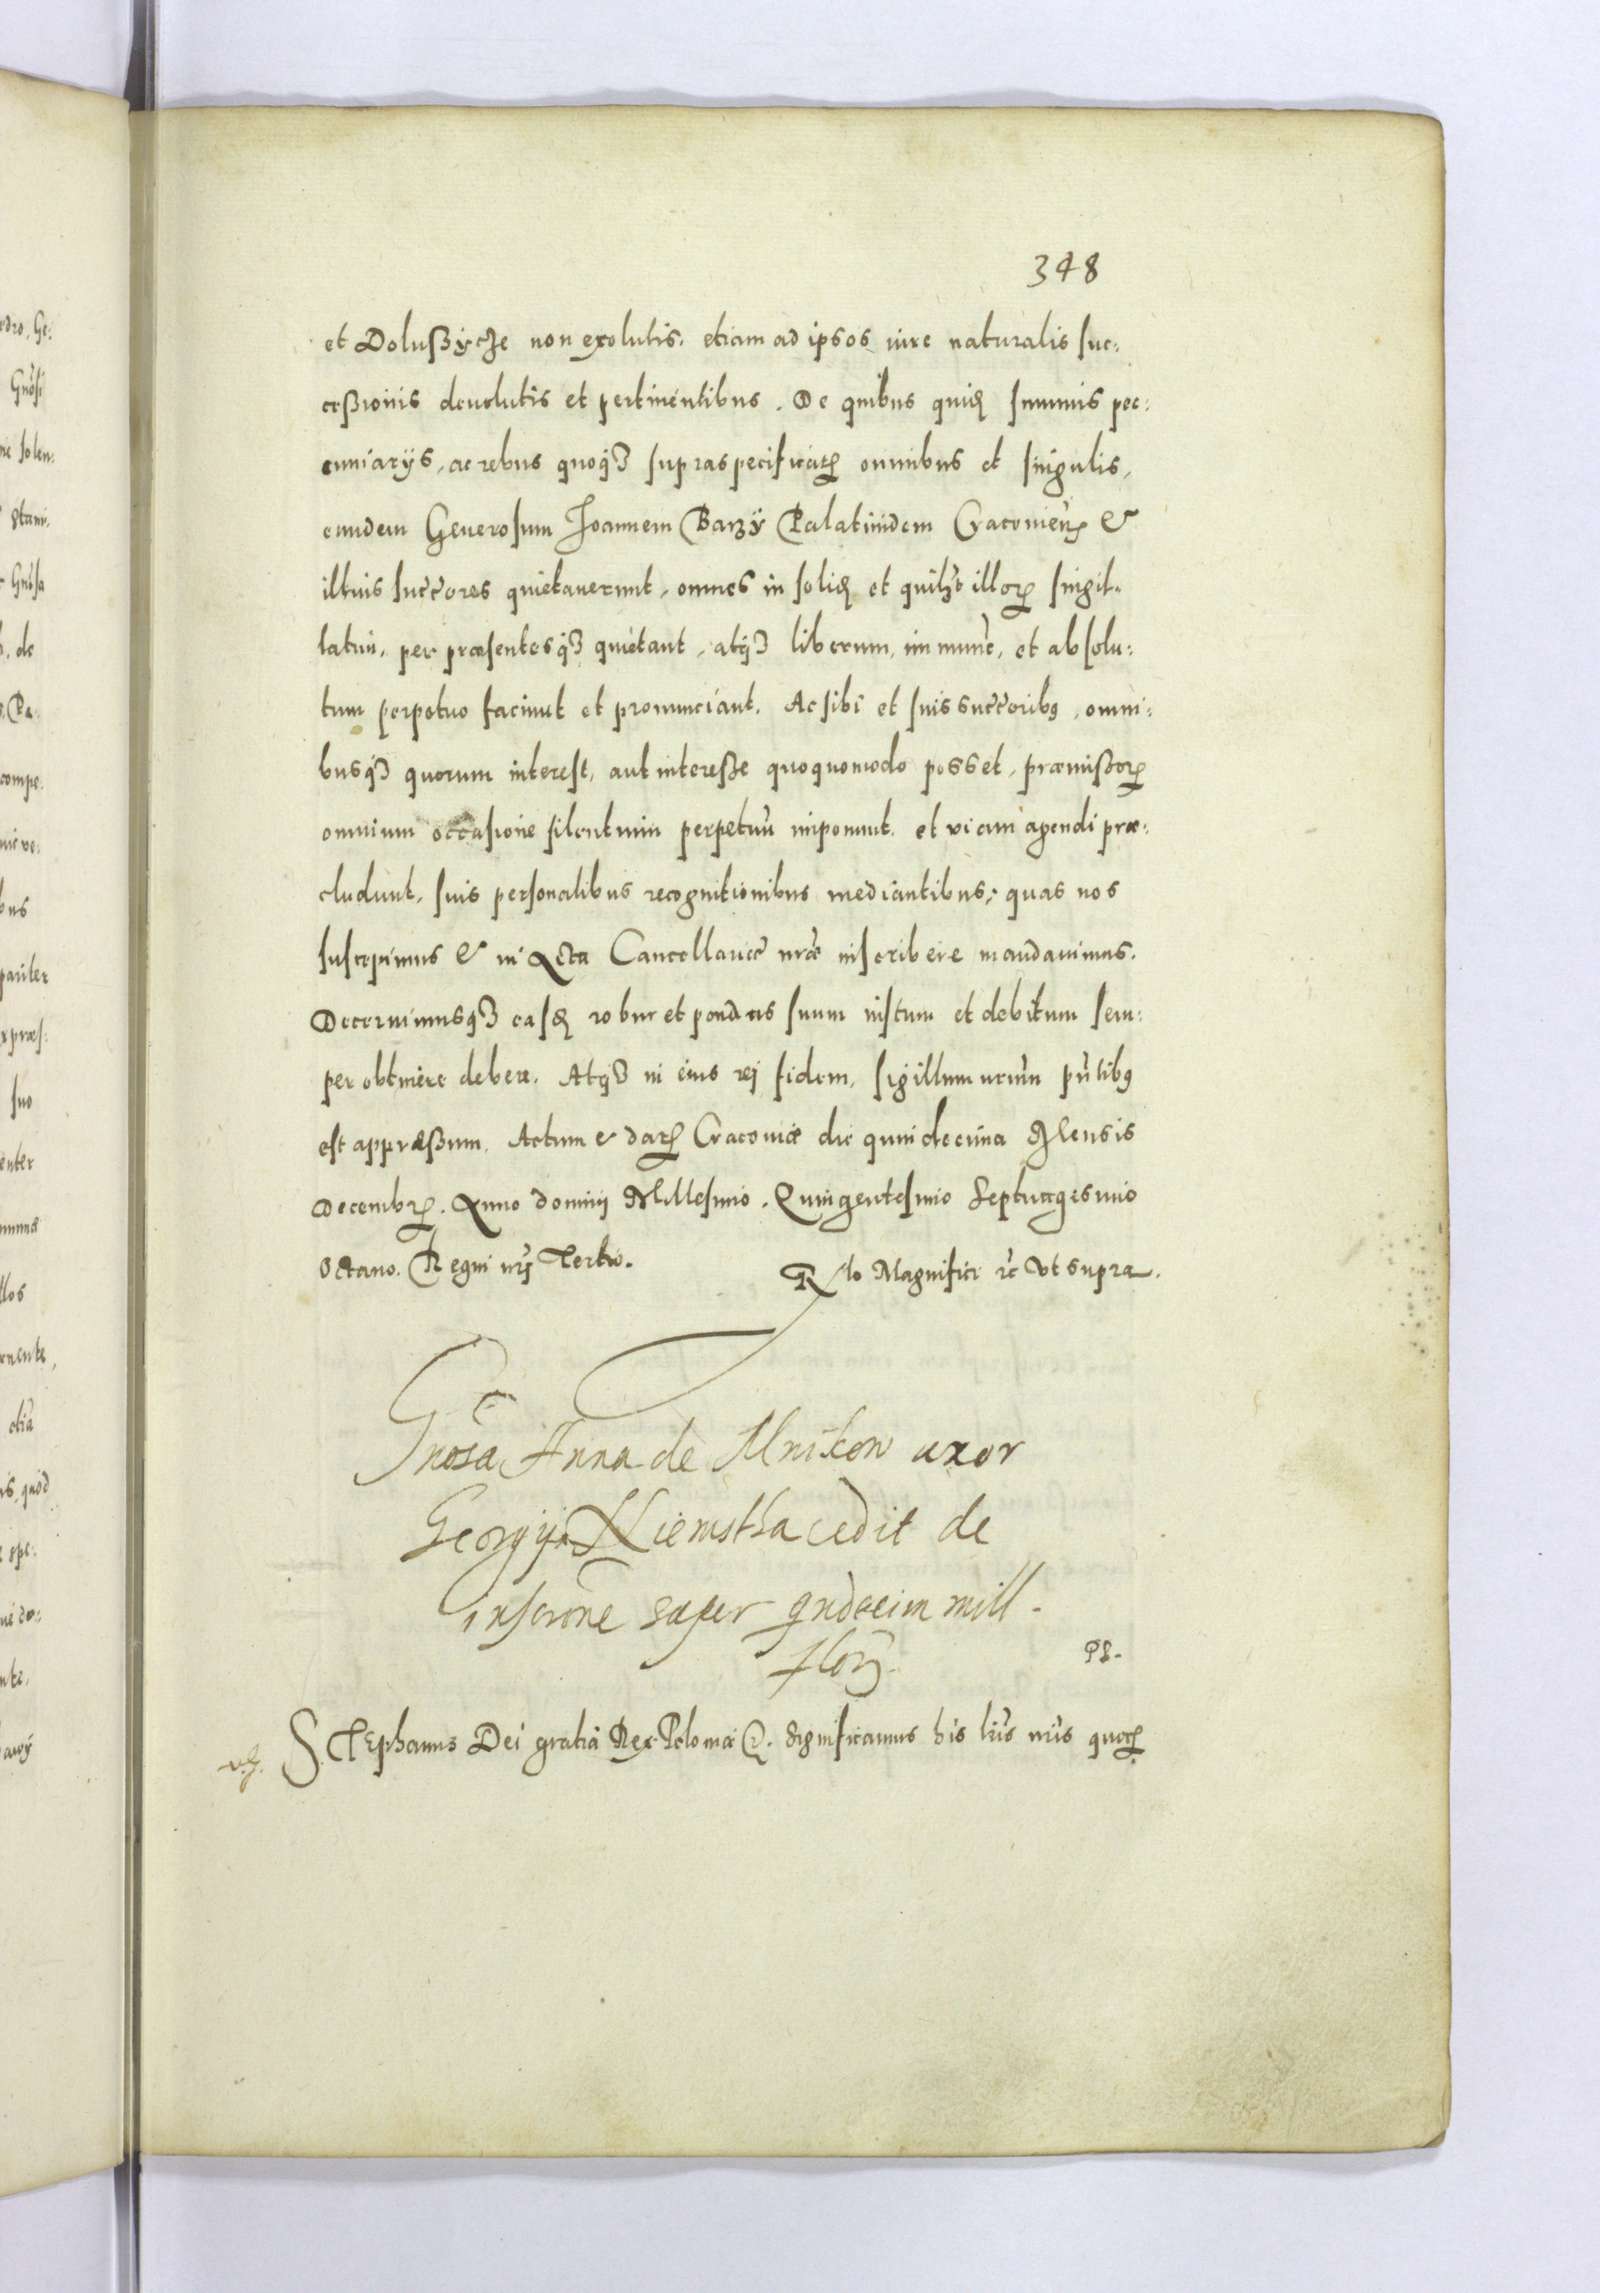 348
et Dolußycze non exolutis. etiam ad ipsos iure naturalis suc:
ceßionis deuolutis et pertinentibus. De quibus quid summis pec:
cuniarijs, ac rebus quoque supraspecificatis omnibus et singulis,
eundem Generosum Joannem Barzy Palatinidem Cracoviens &
illius succores quietauerunt, omnes in solid et quilibet illorum singil-
latim, per præsentesque quietant, atque liberum, immune, et absolu:
tum perpetuo faciunt et pronunciant. Ac sibi et suis succoribus, omni:
busque quorum interest, aut intereße quoquomodo posset, præmißorum
omnium occasione silentium perpetuu imponunt. et viam agendi præ:
cludunt, suis personalibus recognitionibus mediantibus, quas nos
suscepimus & in Acta Cancellariæ nræ inscribere mandauimus.
Decernimusque easd robur et pondus suum iustum et debitum sem:
per obtinere debere. Atque in eius rej fidem, sigillum nrum pntibus
est appræßum. Actum & dat Cracoviæ die quindecima Mensis
Decembr. Anno dominj Millesimo. Quingentesimo Septuagesimo
Octauo. Regni nrj Tertio. Rlo Magnifici rc Vt supra.
Gnosa Anna de Mnikow uxor
Georgij Niemstha cedit de
inscrone super qndecim mill.
flor.
PS.
STEphanus Dei gratia Rex Poloniæ &. Significamus his lris nris quor